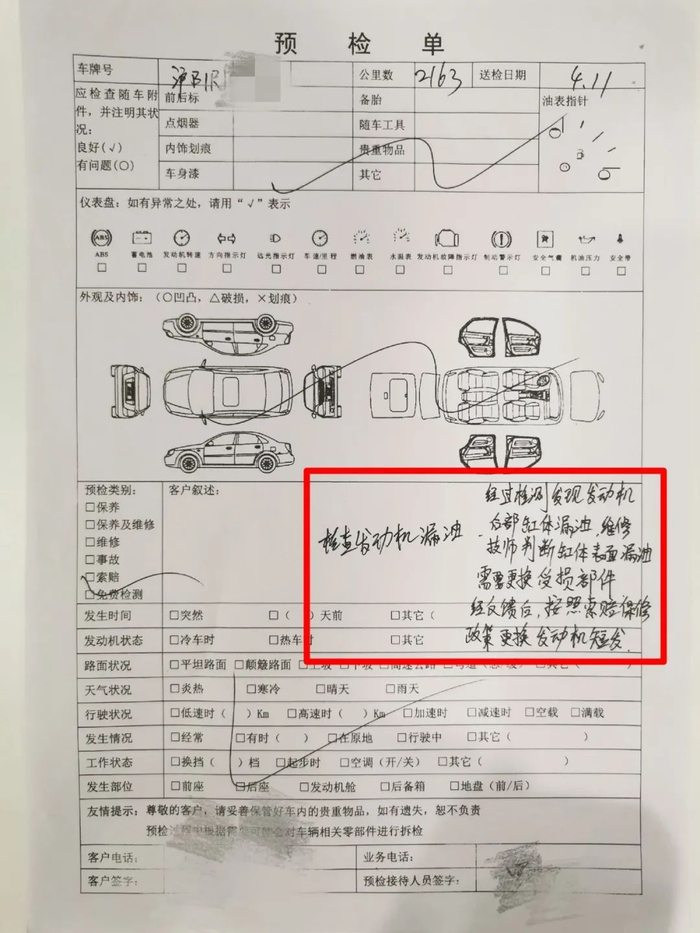 预 检 单
车牌号 沪B1R 公里数 2163 送检日期 4.11
应检查随车附件，并注明其状况：
良好(√)
有问题(○)
前后标 备胎 油表指针
点烟器 随车工具
内饰划痕 贵重物品
车身漆 其它
仪表盘：如有异常之处，请用“√”表示
ABS 蓄电池 发动机转速 方向指示灯 远光指示灯 车速/里程 燃油表 水温表 发动机故障指示灯 制动警示灯 安全气囊 机油压力 安全带
□ □ □ □ □ □ □ □ □ □ □ □ □
外观及内饰：（○凹凸，△破损，×划痕）
预检类别：
□保养
□保养及维修
□维修
□事故
□索赔
□免费检测
客户叙述：
检查发动机漏油
经过检测发现发动机
后部缸体漏油，维修
技师判断缸体表面漏油
需要更换受损部件
经反馈后，按照索赔保修
政策更换发动机短发．
发生时间 □突然 □（ ）天前 □其它（
发动机状态 □冷车时 □热车时 □其它
路面状况 □平坦路面 □颠簸路面 □上坡 □下坡 □高速公路 □弯道（急/缓） □其它（ ）
天气状况 □炎热 □寒冷 □晴天 □雨天
行驶状况 □低速时（ ）Km □高速时（ ）Km □加速时 □减速时 □空载 □满载
发生情况 □经常 □有时（ ） □在原地 □行驶中 □其它（ ）
工作状态 □换挡（ ）档 □起步时 □空调（开/关） □其它（ ）
发生部位 □前座 □后座 □发动机舱 □后备箱 □地盘（前/后）
友情提示：尊敬的客户，请妥善保管好车内的贵重物品，如有遗失，恕不负责
预检过程中根据需要可能会对车辆相关零部件进行拆检
客户电话： 业务电话：
客户签字： 预检接待人员签字：